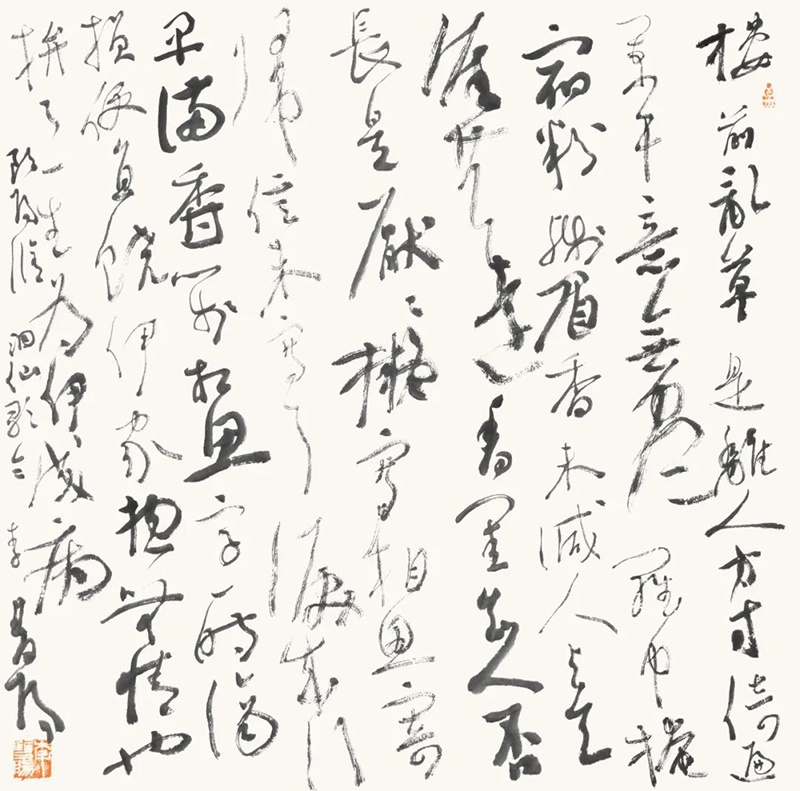 樓前亂草是離人方寸倚遍
闌干意無盡羅巾掩
宿粉殘眉香未減人與天
涯共遠香閨知人否
長是厭〻擬寫相思寄
歸信未寫了淚成行
早滿香箋相思字一時滴
損便直饒伊家總無情也
拚了一生為伊成病
歐陽脩洞仙歌令 李